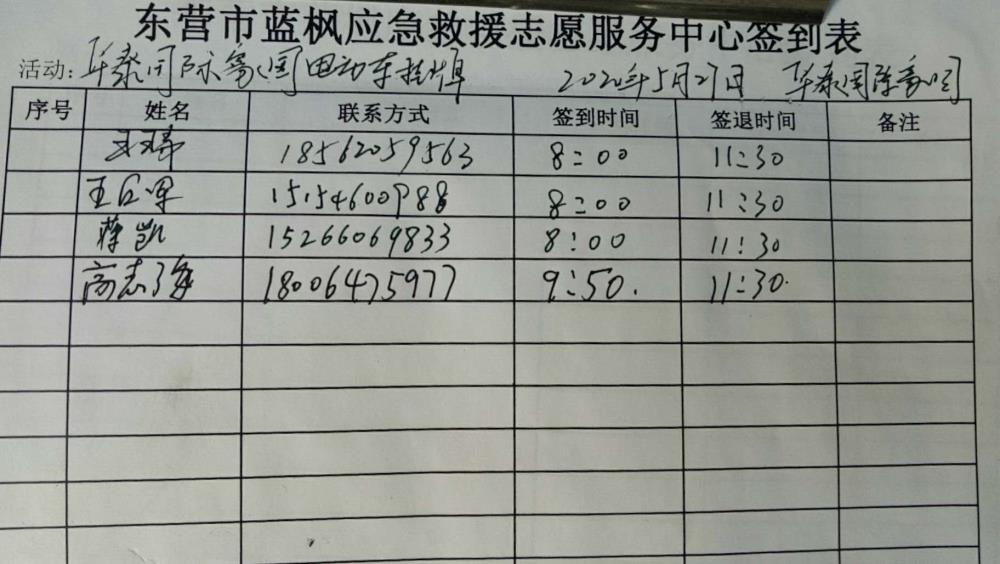 东营市蓝枫应急救援志愿服务中心签到表
活动: 华泰国际家园电动车挂牌 2020年5月27日 华泰国际家园
序号 姓名 联系方式 签到时间 签退时间 备注
18562059563 8:00 11:30
15154600988 8:00 11:30
蒋凯 15266069833 8:00 11:30
高志强 18006475977 9:50. 11:30.